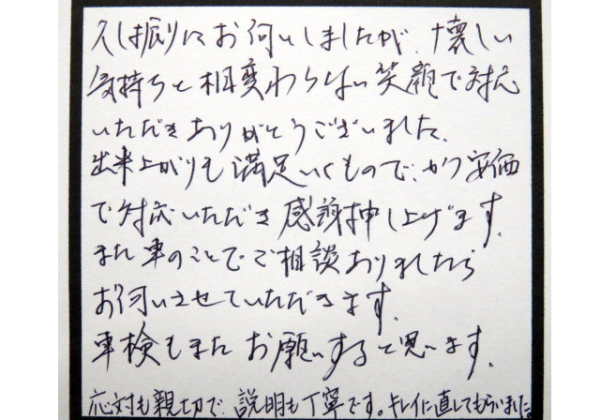 久し振りにお伺いしましたが、懐しい
気持ちと相変わらない笑顔で対応
いただきありがとうございました。
出来上がりも満足いくもので、かつ安価
で対応いただき感謝申し上げます。
また車のことでご相談ありましたら
お伺いさせていただきます。
車検もまたお願いすると思います。
応対も親切で、説明も丁寧です。キレイに直してもらいました